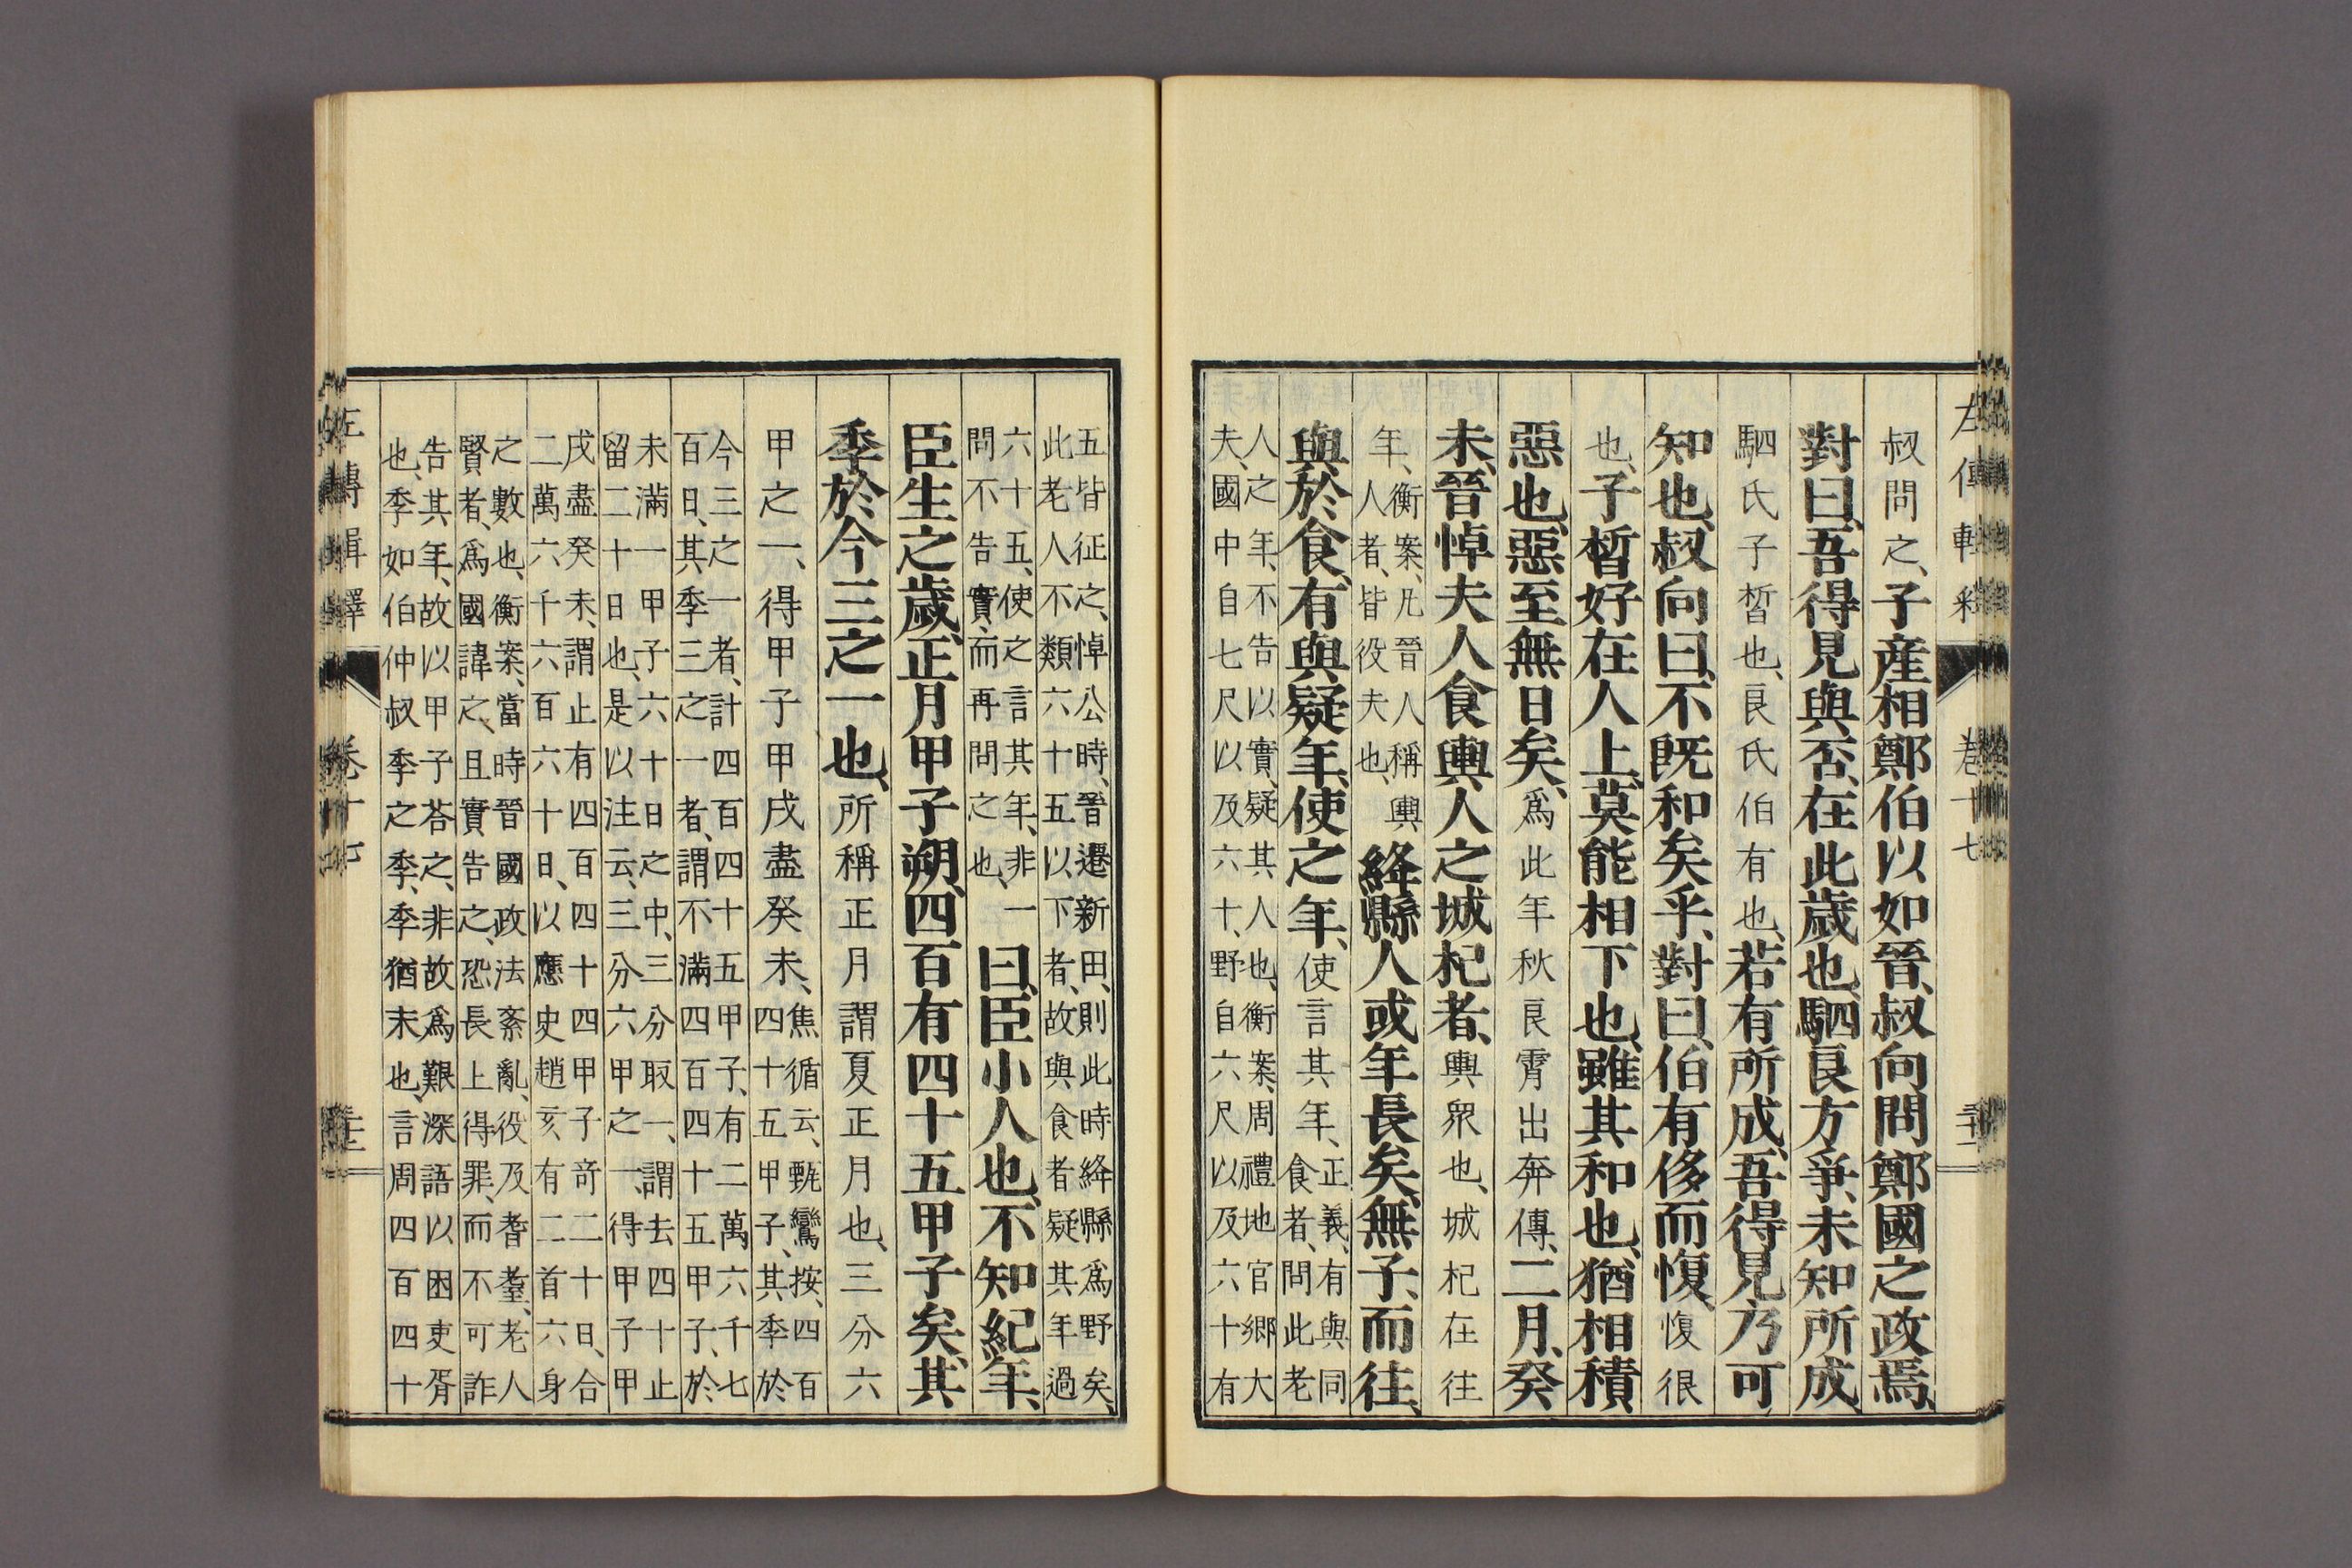 叔問之、子產相鄭伯以如晉、叔向問鄭國之政焉、
對曰、吾得見與否、在此歲也、駟良方爭、未知所成
駟氏子晳也、良氏伯有也、若有所成、吾得見乃可
知也、叔向曰、不既和矣乎、對曰、伯有侈而愎、愎很
也、子晳好在人上、莫能相下也、雖其和也、猶相積
惡也、惡至無日矣、爲此年秋良霄出奔傳、二月、癸
未、晉悼夫人食輿人之城杞者、輿衆也、城杞在往
年、衡案、凡晉人稱輿
人者、皆役夫也、
絳縣人或年長矣、無子、而往、
與於食、有與疑年、使之年、使言其年、正義、有與同
食者、問此老
人之年、不告以實、疑其人也、衡案、周禮地官鄉大
夫、國中自七尺以及六十、野自六尺以及六十有
五皆征之、悼公時、晉遷新田、則此時絳縣爲野矣、
此老人不類六十五以下者、故與食者疑其年過
六十五、使之言其年、非一
問不告實、而再問之也、
曰、臣小人也、不知紀年、
臣生之歲、正月甲子朔、四百有四十五甲子矣、其
季於今三之一也、所稱正月謂夏正月也、三分六
甲之一、得甲子甲戌盡癸未、焦循云、甎鸞按、四百
四十五甲子、其季於
今三之一者、計四百四十五甲子、有二萬六千七
百日、其季三之一者、謂不滿四百四十五甲子、於
未滿一甲子六十日之中、三分取一、謂去四十止
留二十日也、是以注云、三分六甲之一、得甲子甲
戌盡癸未、謂止有四百四十四甲子奇二十日、合
二萬六千六百六十日、以應史趙亥有二首六身
之數也、衡案、當時晉國政法紊亂、役及耆耋、老人
賢者、爲國諱之、且實告之、恐長上得罪、而不可詐
告其年、故以甲子荅之、非故爲艱深語以困吏胥
也、季如伯仲叔季之季、季猶末也、言周四百四十
左傳輯釋 卷十七